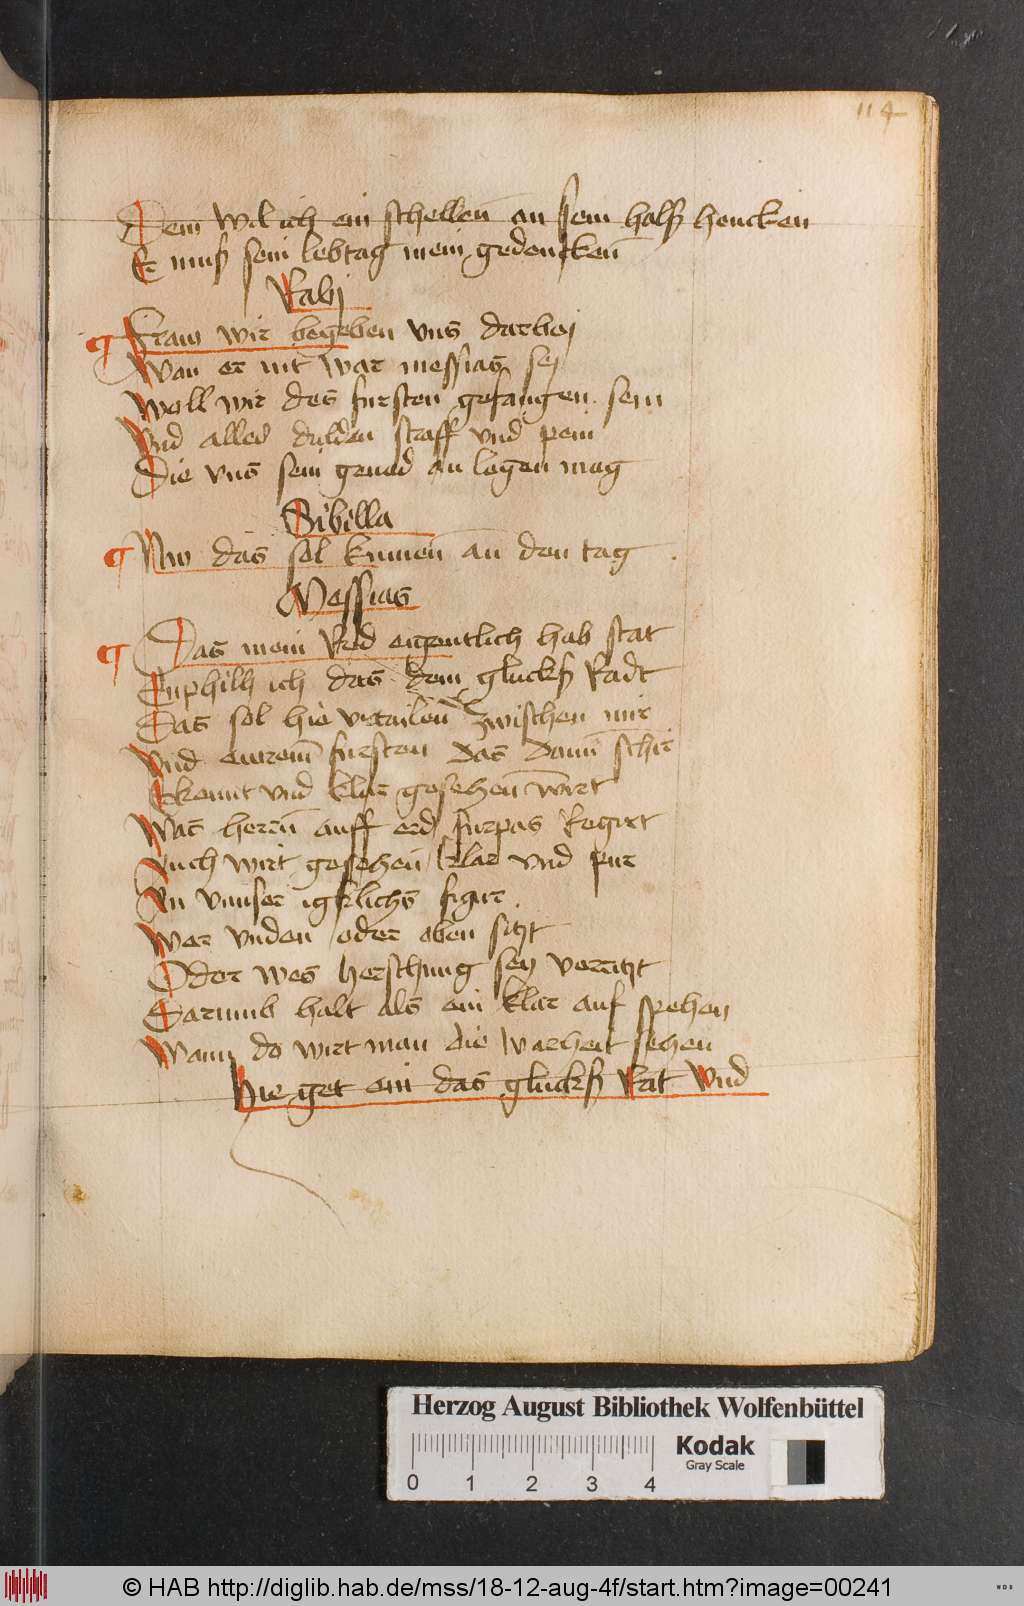 114
Dem wil ich ein schellen an sein halß hencken
Er muß sein lebtag mein gedencken
Rabj
Fraw wir begeben vns darbej
Wan er nit war messias sej
Woll wir des fursten gefangen sein
Vnd alled dulden straff vnd pein
Die vns sein genad an legen mag
Sibilla
Nw das sol kumen an den tag
Messias
Das mein Red eigentlich hab stat
Enphilh ich das dem glucks Radt
Das sol hie vrtailen zwischen mir
Vnd ewrem fursten das dann schir
Erkennt vnd klar gesehen wirt
Was herrn auff erd furpas Regirt
Auch wirt gesehen klar vnd pur
An vnnser igklichs figur
Wer vnden oder oben sitzt
Oder wes herschung sey verritzt
Darumb halt als ein klar auf spehen
Wann do wirt man die warheit sehen
Hie get ein das glucks Rat vnd
Herzog August Bibliothek Wolfenbüttel
0 1 2 3 4
Kodak
Gray Scale
© HAB http://diglib.hab.de/mss/18-12-aug-4f/start.htm?image=00241